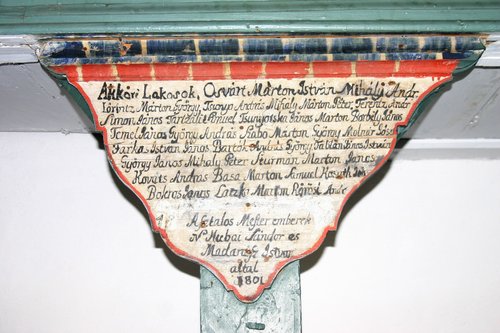 Akkori Lakosok, Osvárt Márton István Mihály Andr.
Lőrintz Márton György, András Mihály Márton Péter Ferentz Andr
Simon János Sámuel János Márton Borbély János
János György András Szabo Márton György Molnár
Farkas István János Bartók András György Fábián János István
György János Mihály Péter Márton János
Kováts András Basa Márton Sámuel Kossuth
Bokros János Latzk Márton Andr
A Sztalos Mester emberek
N Hubai Sándor és
Madarasz István
által
1801